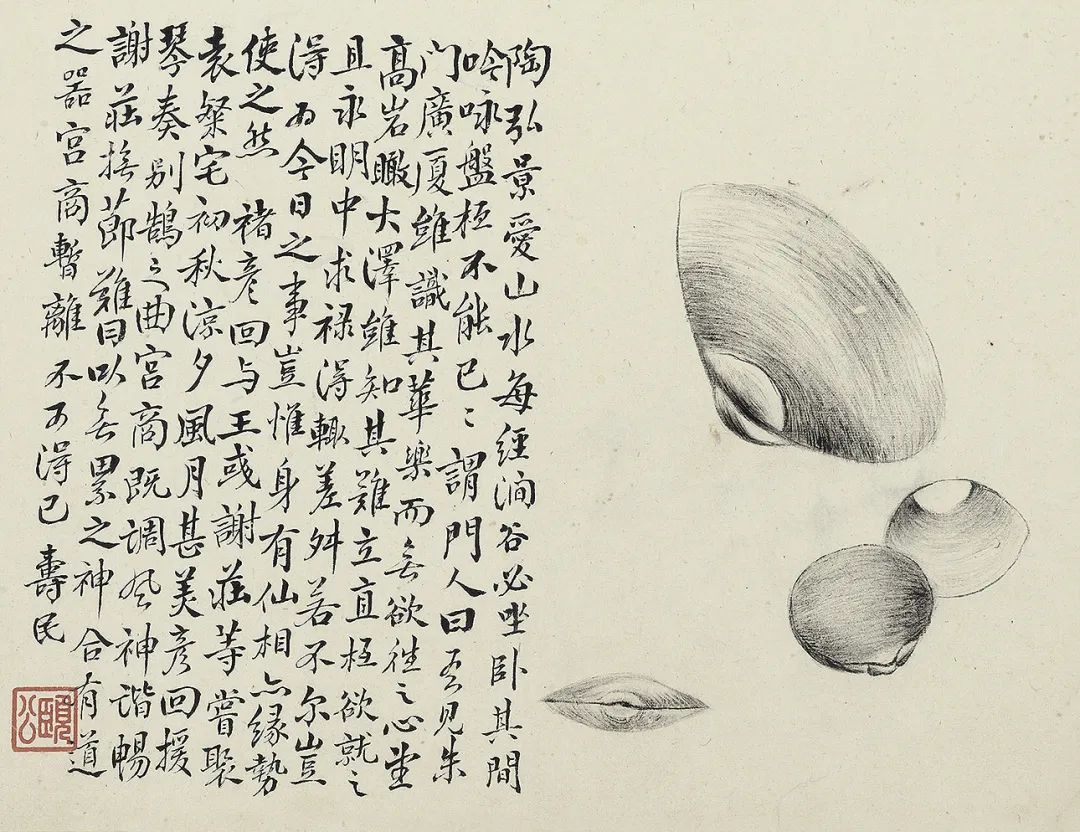 陶弘景愛山水每經澗谷必坐臥其間
吟咏盤桓不能已〻謂門人曰吾見朱
門廣厦雖識其華樂而无欲往之心望
高岩瞰大澤雖知其難立直恒欲就之
且永明中求禄得輙差舛若不尔豈
得為今日之事豈惟身有仙相亦緣勢
使之然 褚彦回与王彧謝莊等嘗聚
袁粲宅初秋涼夕風月甚美彦回援
琴奏别鵠之曲宫商既调風神谐暢
謝莊撫節難曰以无累之神合有道
之器宫商暫離不可得已 壽民
頤公